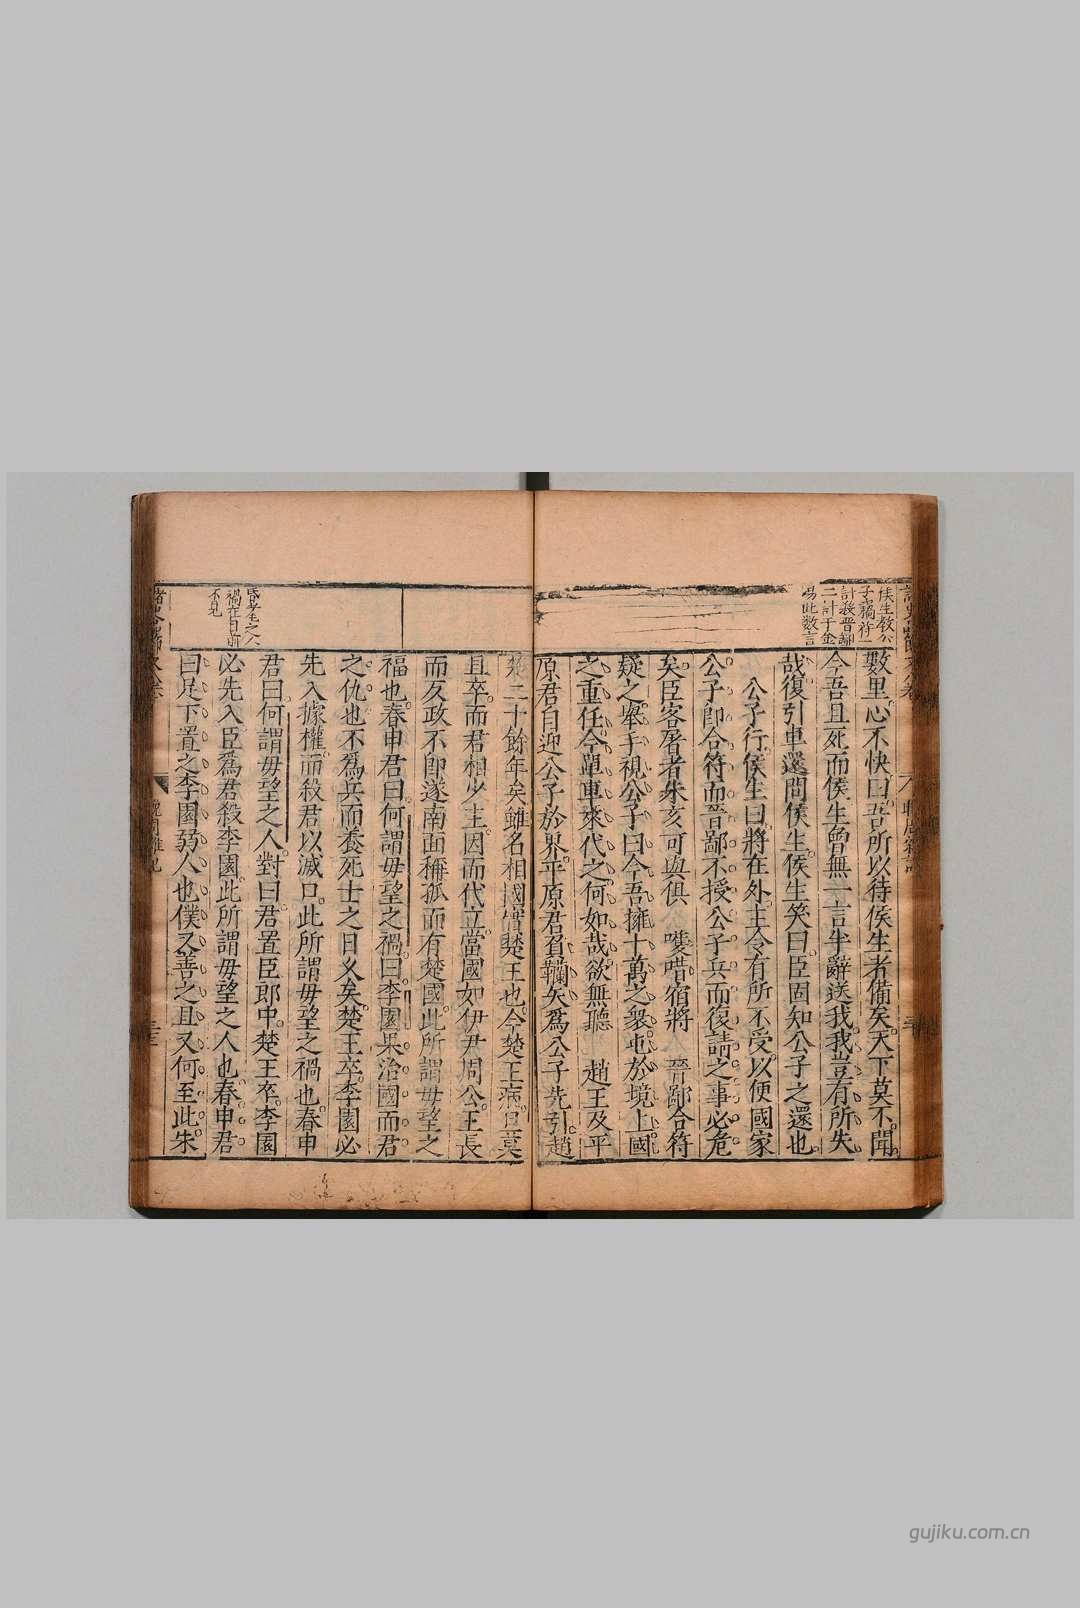 侯生教公
子竊符一
計殺晉鄙
二計于金
此數言
數里心不快曰吾所以待侯生者備矣天下莫不聞
今吾且死而侯生曾無一言半辭送我我豈有所失
哉復引車還問侯生侯生笑曰臣固知公子之還也
公子行侯生曰將在外主令有所不受以便國家
公子即合符而晉鄙不授公子兵而復請之事必危
矣臣客屠者朱亥可與俱 嚄唶宿將 晉鄙合符
疑之舉手視公子曰今吾擁十萬之衆屯於境上國
之重任今單車來代之何如哉欲無聽 趙王及平
原君自迎公子於界平原君負韊矢爲公子先引趙
之人
禍在目前
不見
楚二十餘年矣雖名相國實楚王也今楚王病旦莫
且卒而君相少主因而代立當國如伊尹周公王長
而反政不即遂南面稱孤而有楚國此所謂毋望之
福也春申君曰何謂毋望之禍曰李園不治國而君
之仇也不爲兵而養死士之日久矣楚王卒李園必
先入據權而殺君以滅口此所謂毋望之禍也春申
君曰何謂毋望之人對曰君置臣郎中楚王卒李園
必先入臣爲君殺李園此所謂毋望之人也春申君
曰足下置之李園弱人也僕又善之且又何至此朱